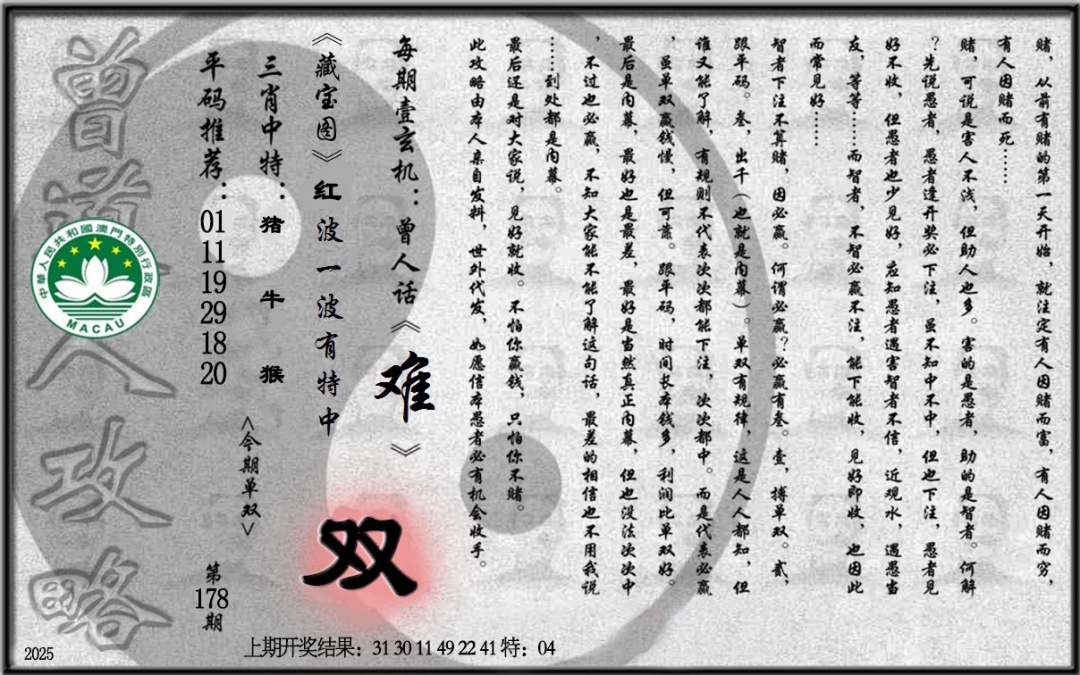 赌，从前有赌的第一天开始，就注定有人因赌而富，有人因赌而穷，
有人因赌而死……
赌，可说是害人不浅，但助人也多。害的是愚者，助的是智者。何解
？先说愚者，愚者逢开奖必下注，虽不知中不中，但也下注，愚者见
好不收，但愚者也少见好，应知愚者遇害智者不信，近观水，遇愚当
友，等等……而智者，不智必赢不注，能下能收，见好即收，也因此
而常见好……
智者下注不算赌，因必赢。何谓必赢？必赢有叁。壹，搏单双。贰，
跟平码。叁，出千（也就是内幕）。单双有规律，这是人人都知，但
谁又能了解，有规则不代表次次都能下注，次次都中。而是代表必赢
，虽单双赢钱慢，但可靠。跟平码，时间长本钱多，利润比单双好。
最后是内幕，最好也是最差，最好是当然真正内幕，但也没法次次中
，不过也必赢，不知大家能不能了解这句话，最差的相信也不用我说
……到处都是内幕。
最后还是对大家说，见好就收。不怕你赢钱，只怕你不赌。
此攻略由本人亲自发料，世外代发，如愿信本愚者必有机会收手。
每期壹玄机：曾人话《难》
《藏宝图》红波一波有特中
双
三肖中特：猪 牛 猴
<今期单双>
平码推荐：01 11 19 29 18 20
第178期
曾道人攻略
中華人民共和國澳門特別行政區
MACAU
2025
上期开奖结果：31 30 11 49 22 41 特：04